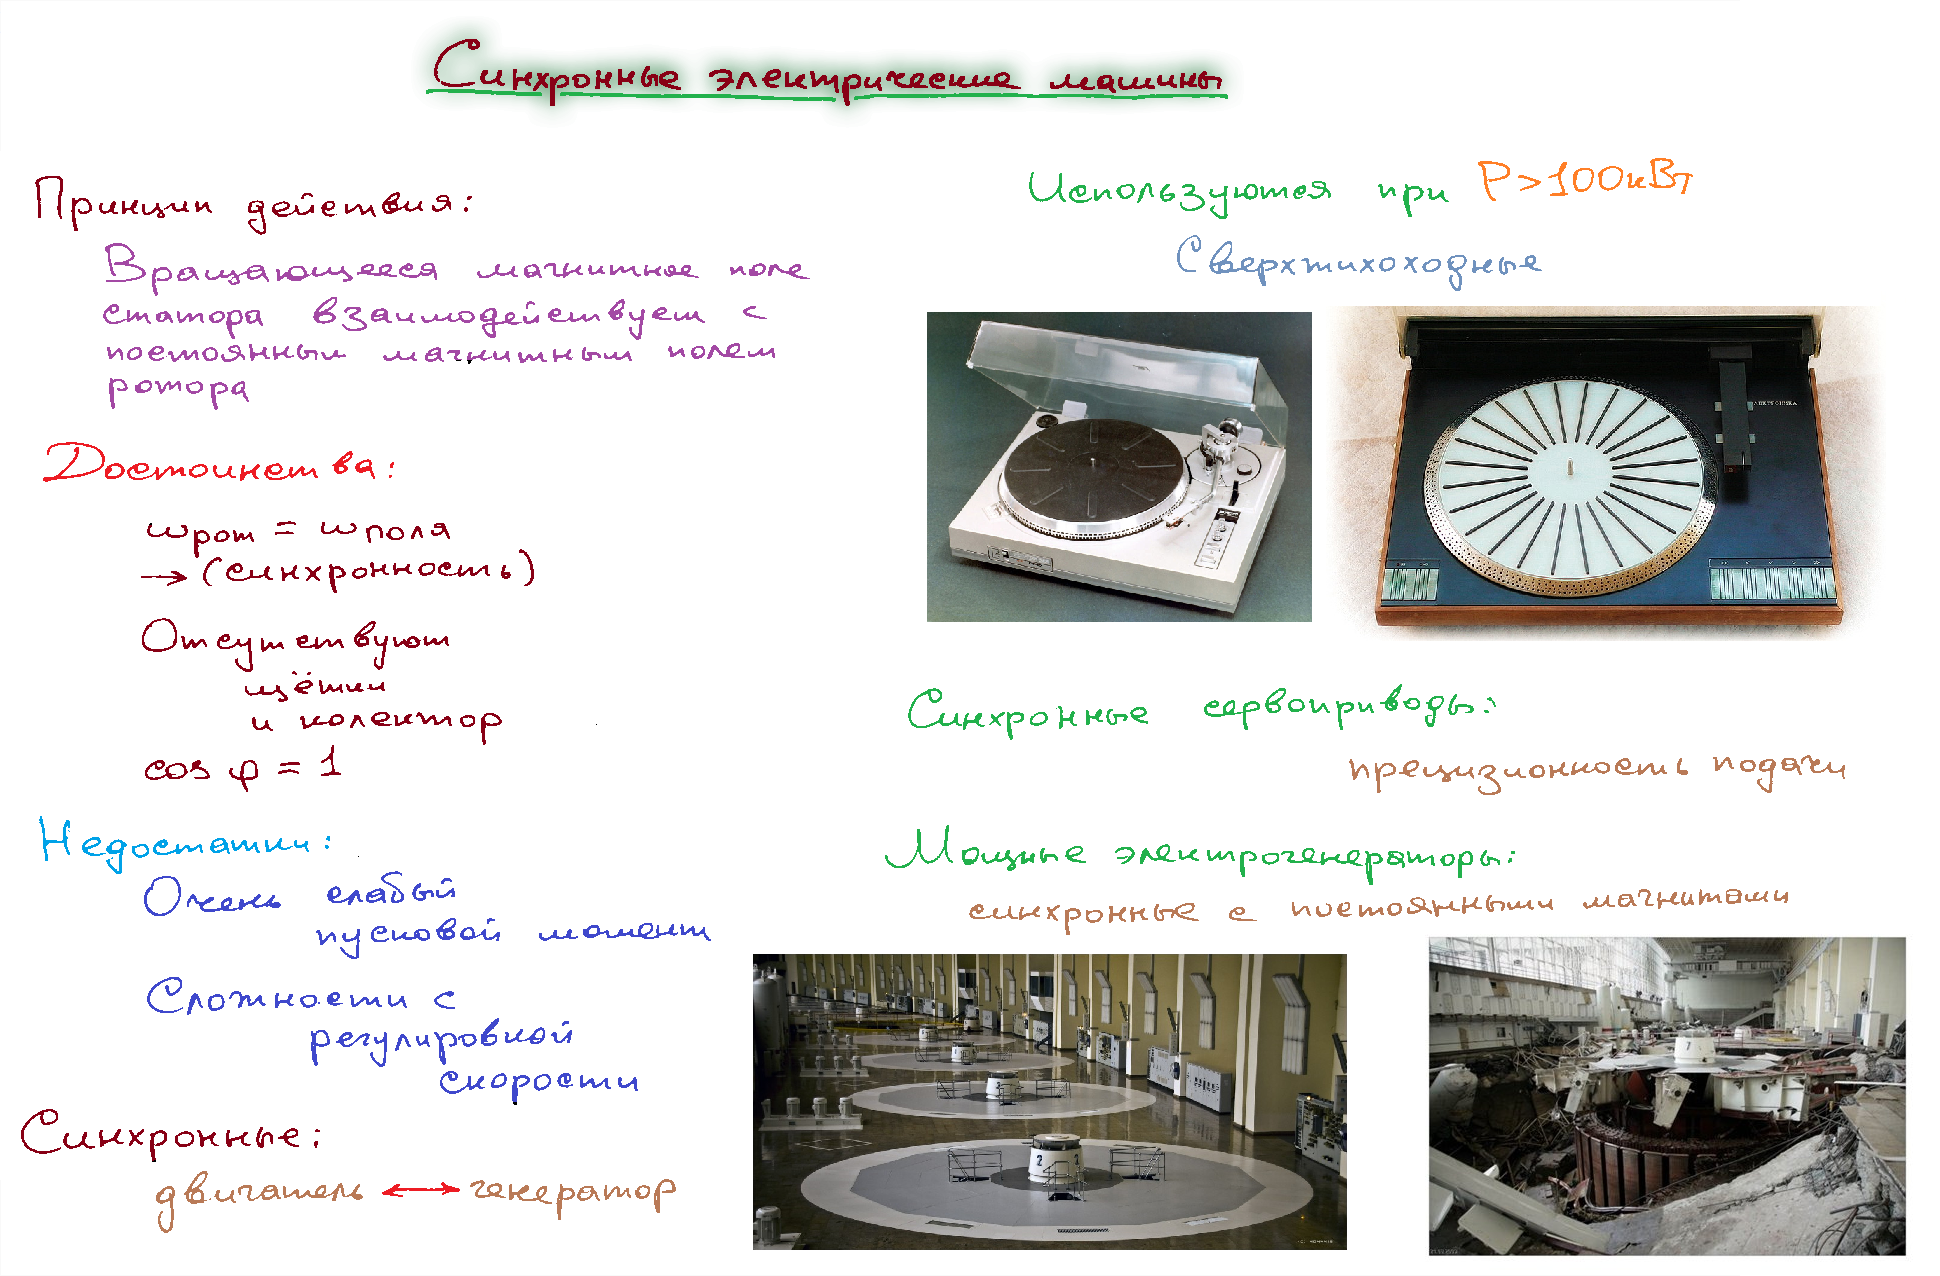 Синхронные электрические машины
Принцип действия:
Вращающееся магнитное поле
статора взаимодействует с
постоянным магнитным полем
ротора
Достоинства:
ωрот = ωполя
→ (синхронность)
Отсутствуют
щётки
и колектор
cos φ = 1
Недостатки:
Очень слабый
пусковой момент
Сложности с
регулировкой
скорости
Синхронные:
двигатель ↔ генератор
Используются при P>100кВт
Сверхтихоходные
Синхронные сервоприводы:
прецизионность подачи
Мощные электрогенераторы:
синхронные с постоянными магнитами
2
2
7